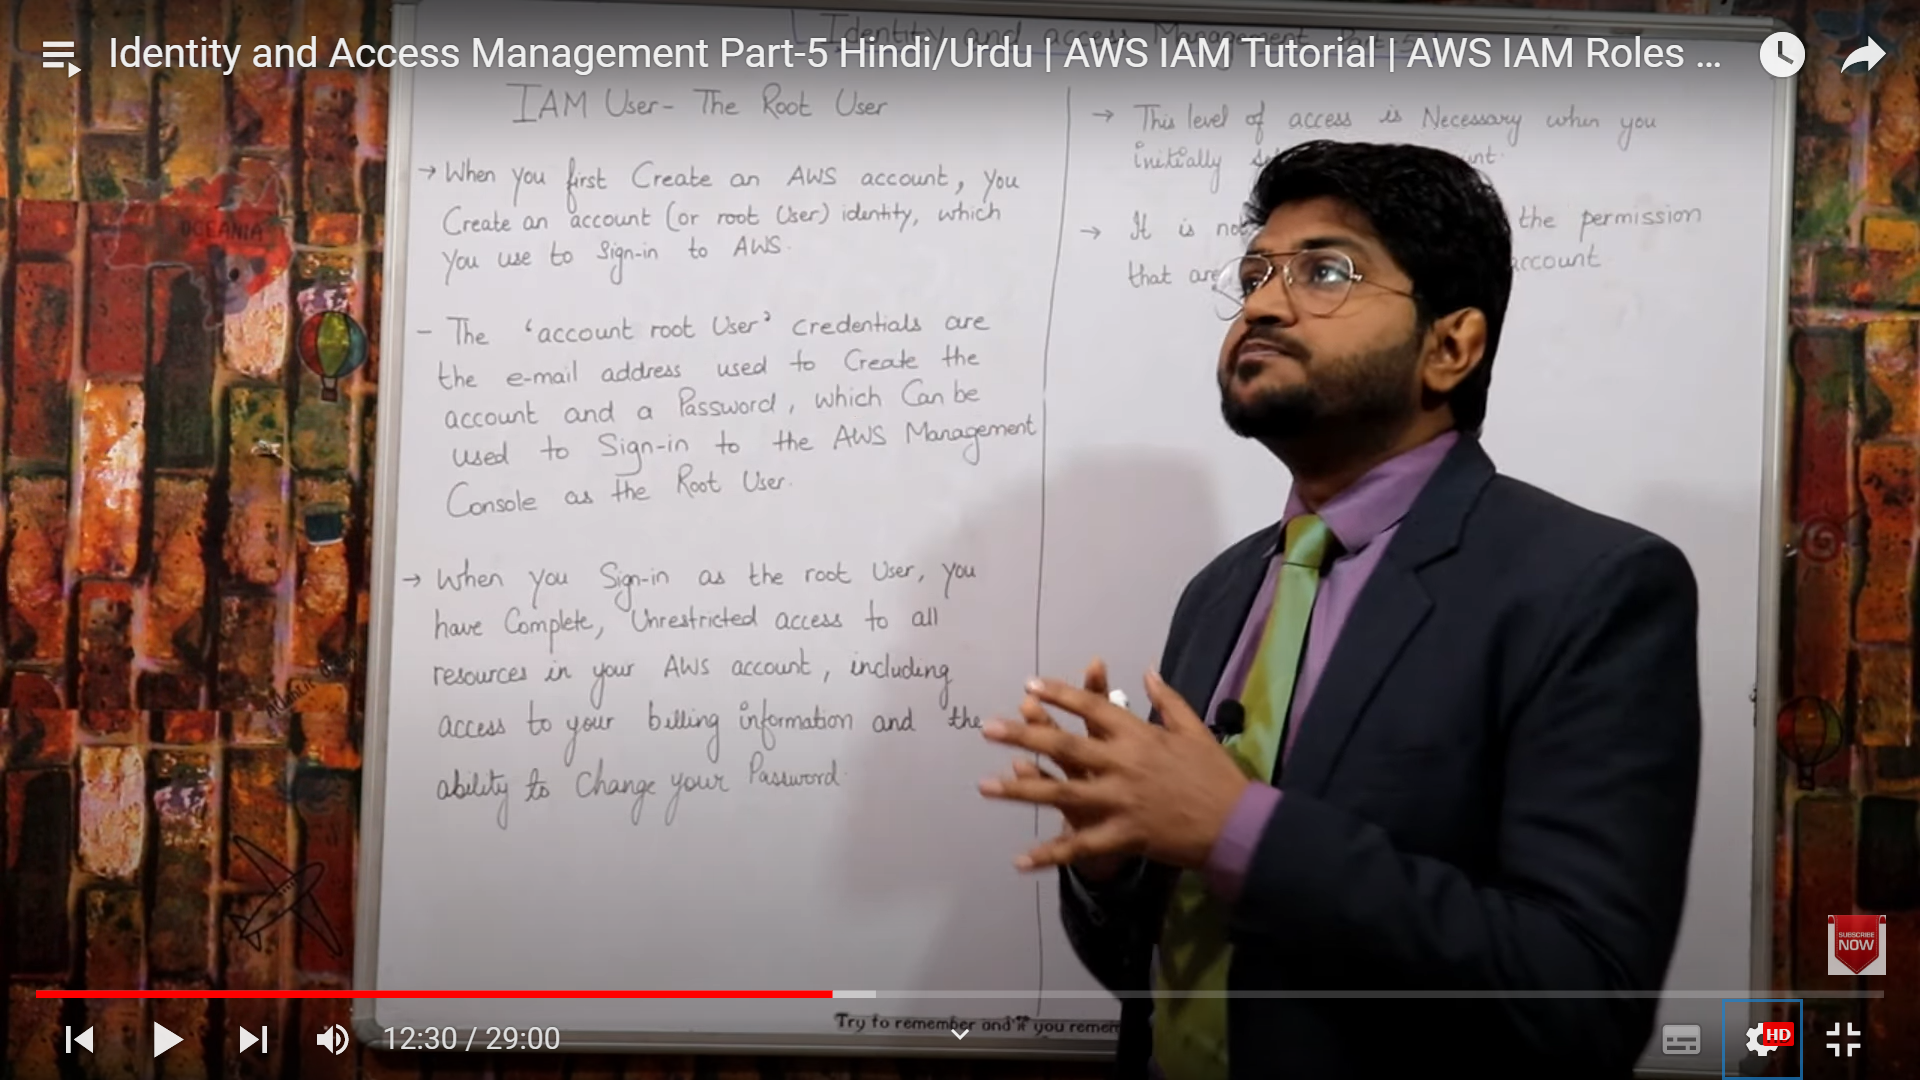 Identity and access Management Part-5
Identity and Access Management Part-5 Hindi/Urdu | AWS IAM Tutorial | AWS IAM Roles ...
IAM User - The Root User
→ When you first Create an AWS account, you
Create an account (or root User) identity, which
you use to Sign-in to AWS.
- The 'account root User' credentials are
the e-mail address used to Create the
account and a Password, which Can be
used to Sign-in to the AWS Management
Console as the Root User.
→ When you Sign-in as the root User, you
have Complete, Unrestricted access to all
resources in your AWS account, including
access to your billing information and the
ability to Change your Password.
→ This level of access is Necessary when you
initially
→ It is the permission
that are account
OCEANIA
SUBSCRIBE
NOW
Try to remember and if you remem
12:30 / 29:00
HD